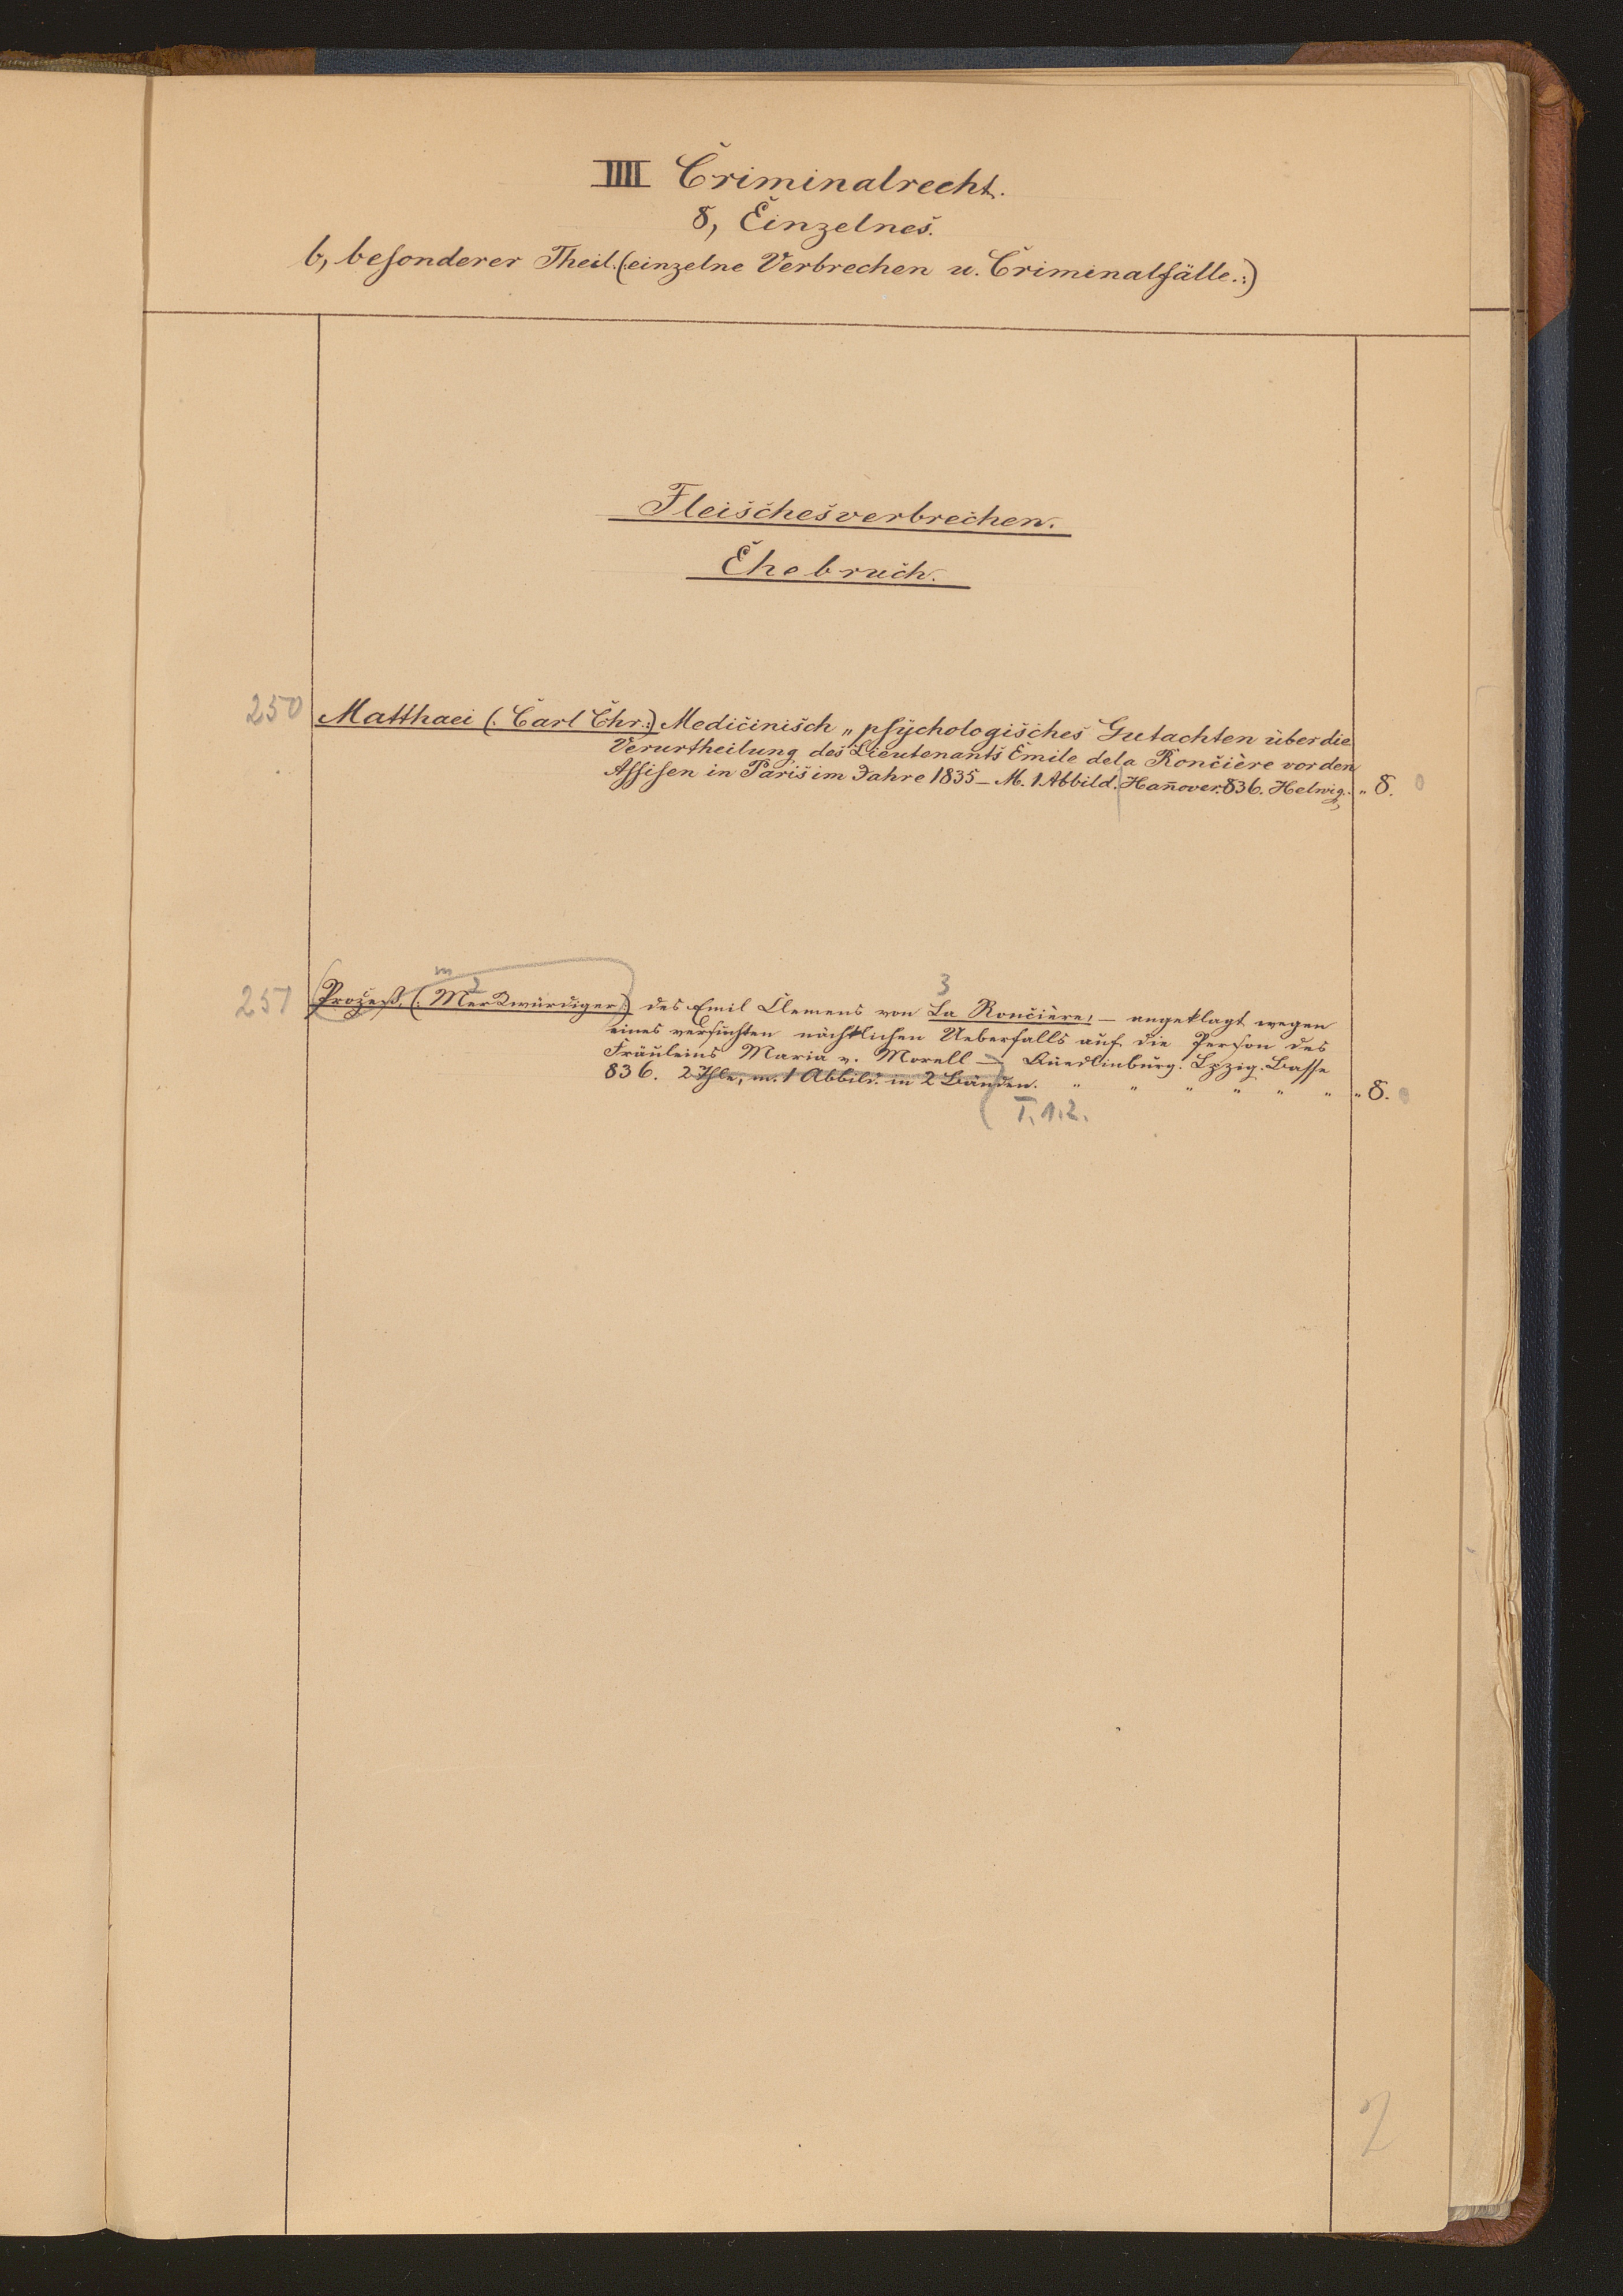 IIII Criminalrecht.
8, Einzelnes.
b, besonderer Theil.(einzelne Verbrechen u. Criminalfälle.:)
Fleischesverbrechen.
Ehebruch.
250 Matthaei (: Carl Chr.:) Medicinisch „ psychologisches Gutachten über die
Verurtheilung des Lieutenants Emile de la Roncière vor den
Assisen in Paris im Jahre 1835 – M. 1 Abbild. Han̄over. 836. Helwig. „ 8. 0
m 2 3
251 Prozeß, (: Merkwürdiger:) des Emil Clemens von La Roncière, – angeklagt wegen
eines versuchten nächtlichen Ueberfalls auf die Person des
Fräuleins Maria v. Morell – Quedlinburg. Lpzig. Basse
836. 2 Thle, m. 1 Abbild. in 2 Bänden. „ „ „ „ „ „ „ 8. 0
T. 1.2.